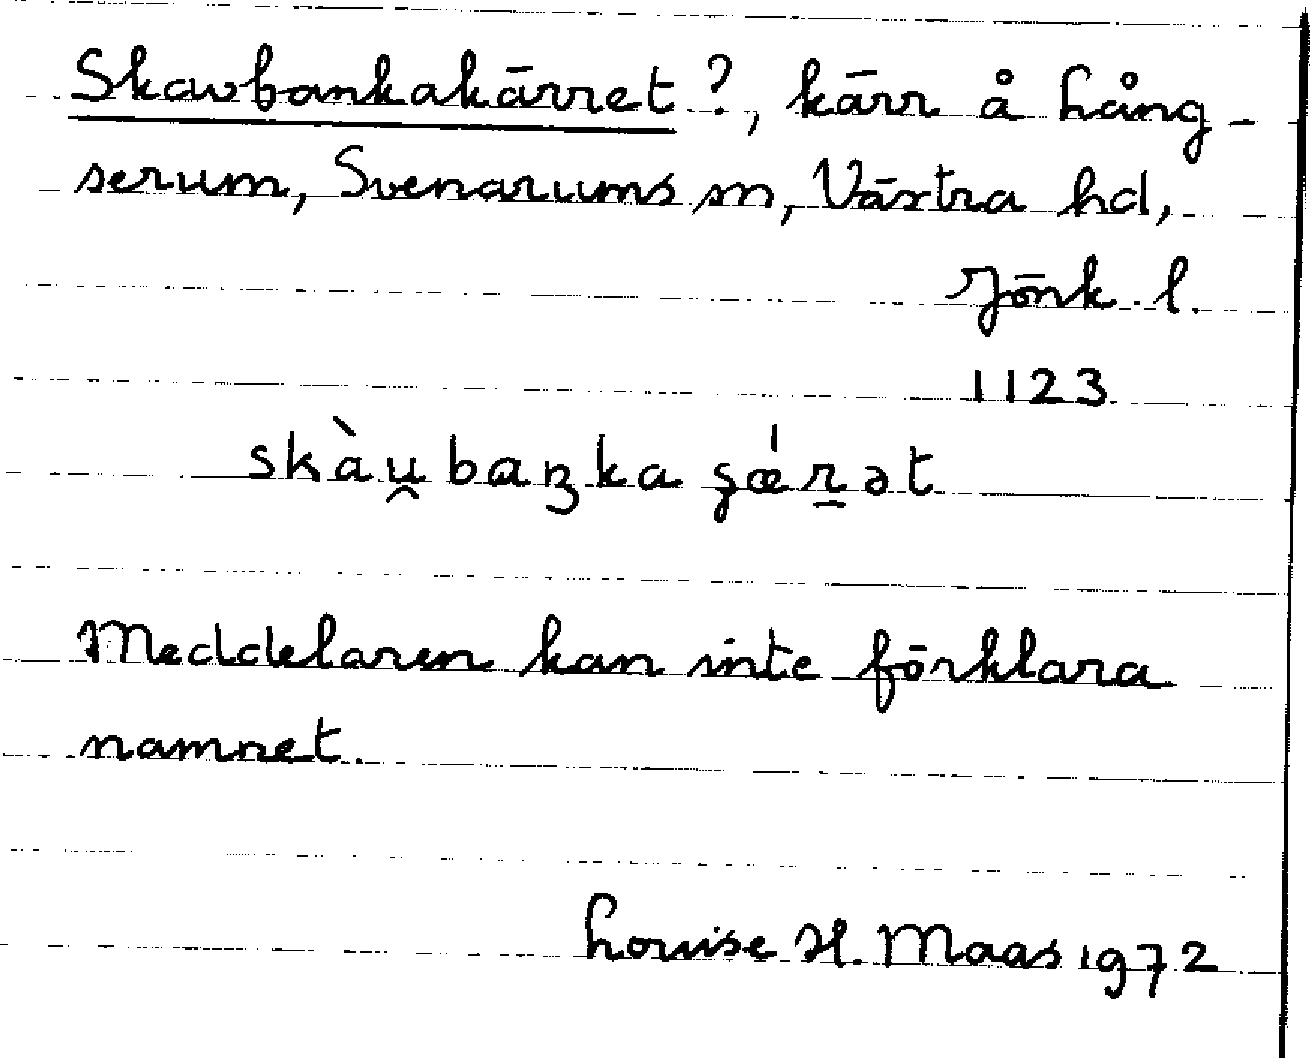 Skawbankakärret ?, kärr å Lång-
serum, Svenarums sn, Västra hd,
Jönk. l.
1123
skàu̯baꞑka ʂǽr̠ət
Meddelaren kan inte förklara
namnet.
Louise H. Maas 1972